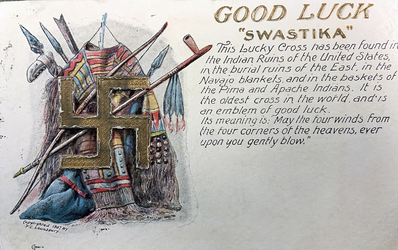 GOOD LUCK
"SWASTIKA"
This Lucky Cross has been found in
the Indian Ruins of the United States,
in the burial ruins of the East, in the
Navajo blankets, and in the baskets of
the Pima and Apache Indians. It is
the oldest cross in the world, and is
an emblem of good luck.
Its meaning is: "May the four winds from
the four corners of the heavens, ever
upon you gently blow."
Copyrighted 1907 by
E. L. Lounsbury